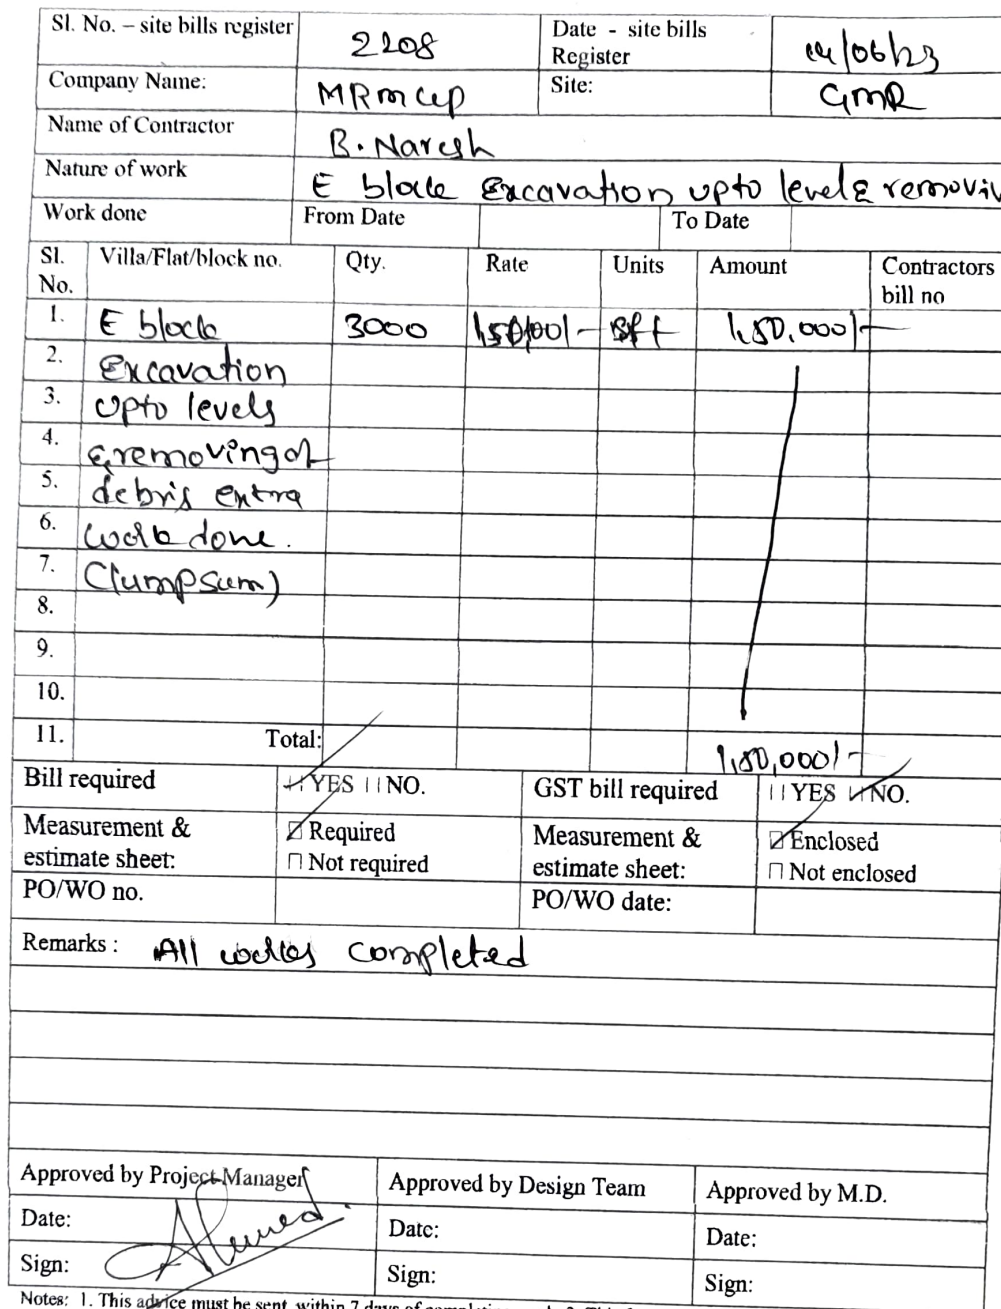 Sl. No. – site bills register 2208 Date - site bills Register 14/06/23
Company Name: MRMCEP Site: GMR
Name of Contractor B. Naresh
Nature of work E block Excavation upto levels & removin
Work done From Date To Date
Sl. No. Villa/Flat/block no. Qty. Rate Units Amount Contractors bill no
1. E block 3000 sft 1,50,000/-
2. Excavation
3. upto levels
4. & removing of
5. debris extra
6. work done.
7. (lumpsum)
8.
9.
10.
11. Total: 1,50,000/-
Bill required YES NO. GST bill required YES NO.
Measurement & estimate sheet: Required Measurement & estimate sheet: Enclosed
Not required Not enclosed
PO/WO no. PO/WO date:
Remarks : All works completed
Approved by Project Manager Approved by Design Team Approved by M.D.
Date: Date: Date:
Sign: Ahmed Sign: Sign:
Notes: 1. This advice must be sent within 7 days of